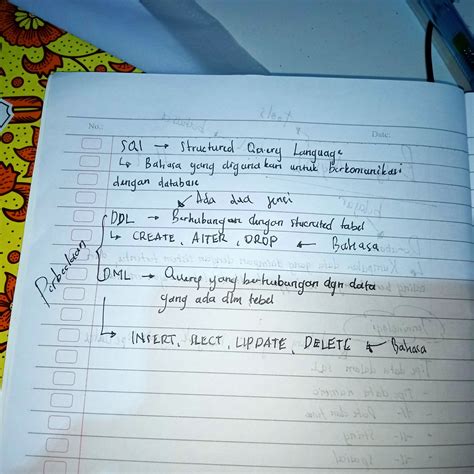 No.:
Date:
SQl → Structured Query Language
↳ Bahasa yang digunakan untuk berkomunikasi
dengan database
↙ Ada dua jenis
Perbedaan
DDL → Berhubungan dengan stucruted tabel
↳ CREATE, AlTER, DROP ← Bahasa
DML → Query yang berhubungan dgn data
yang ada dlm tebel
↳ INSERT, SLECT, UPDATE, DELETE ← Bahasa